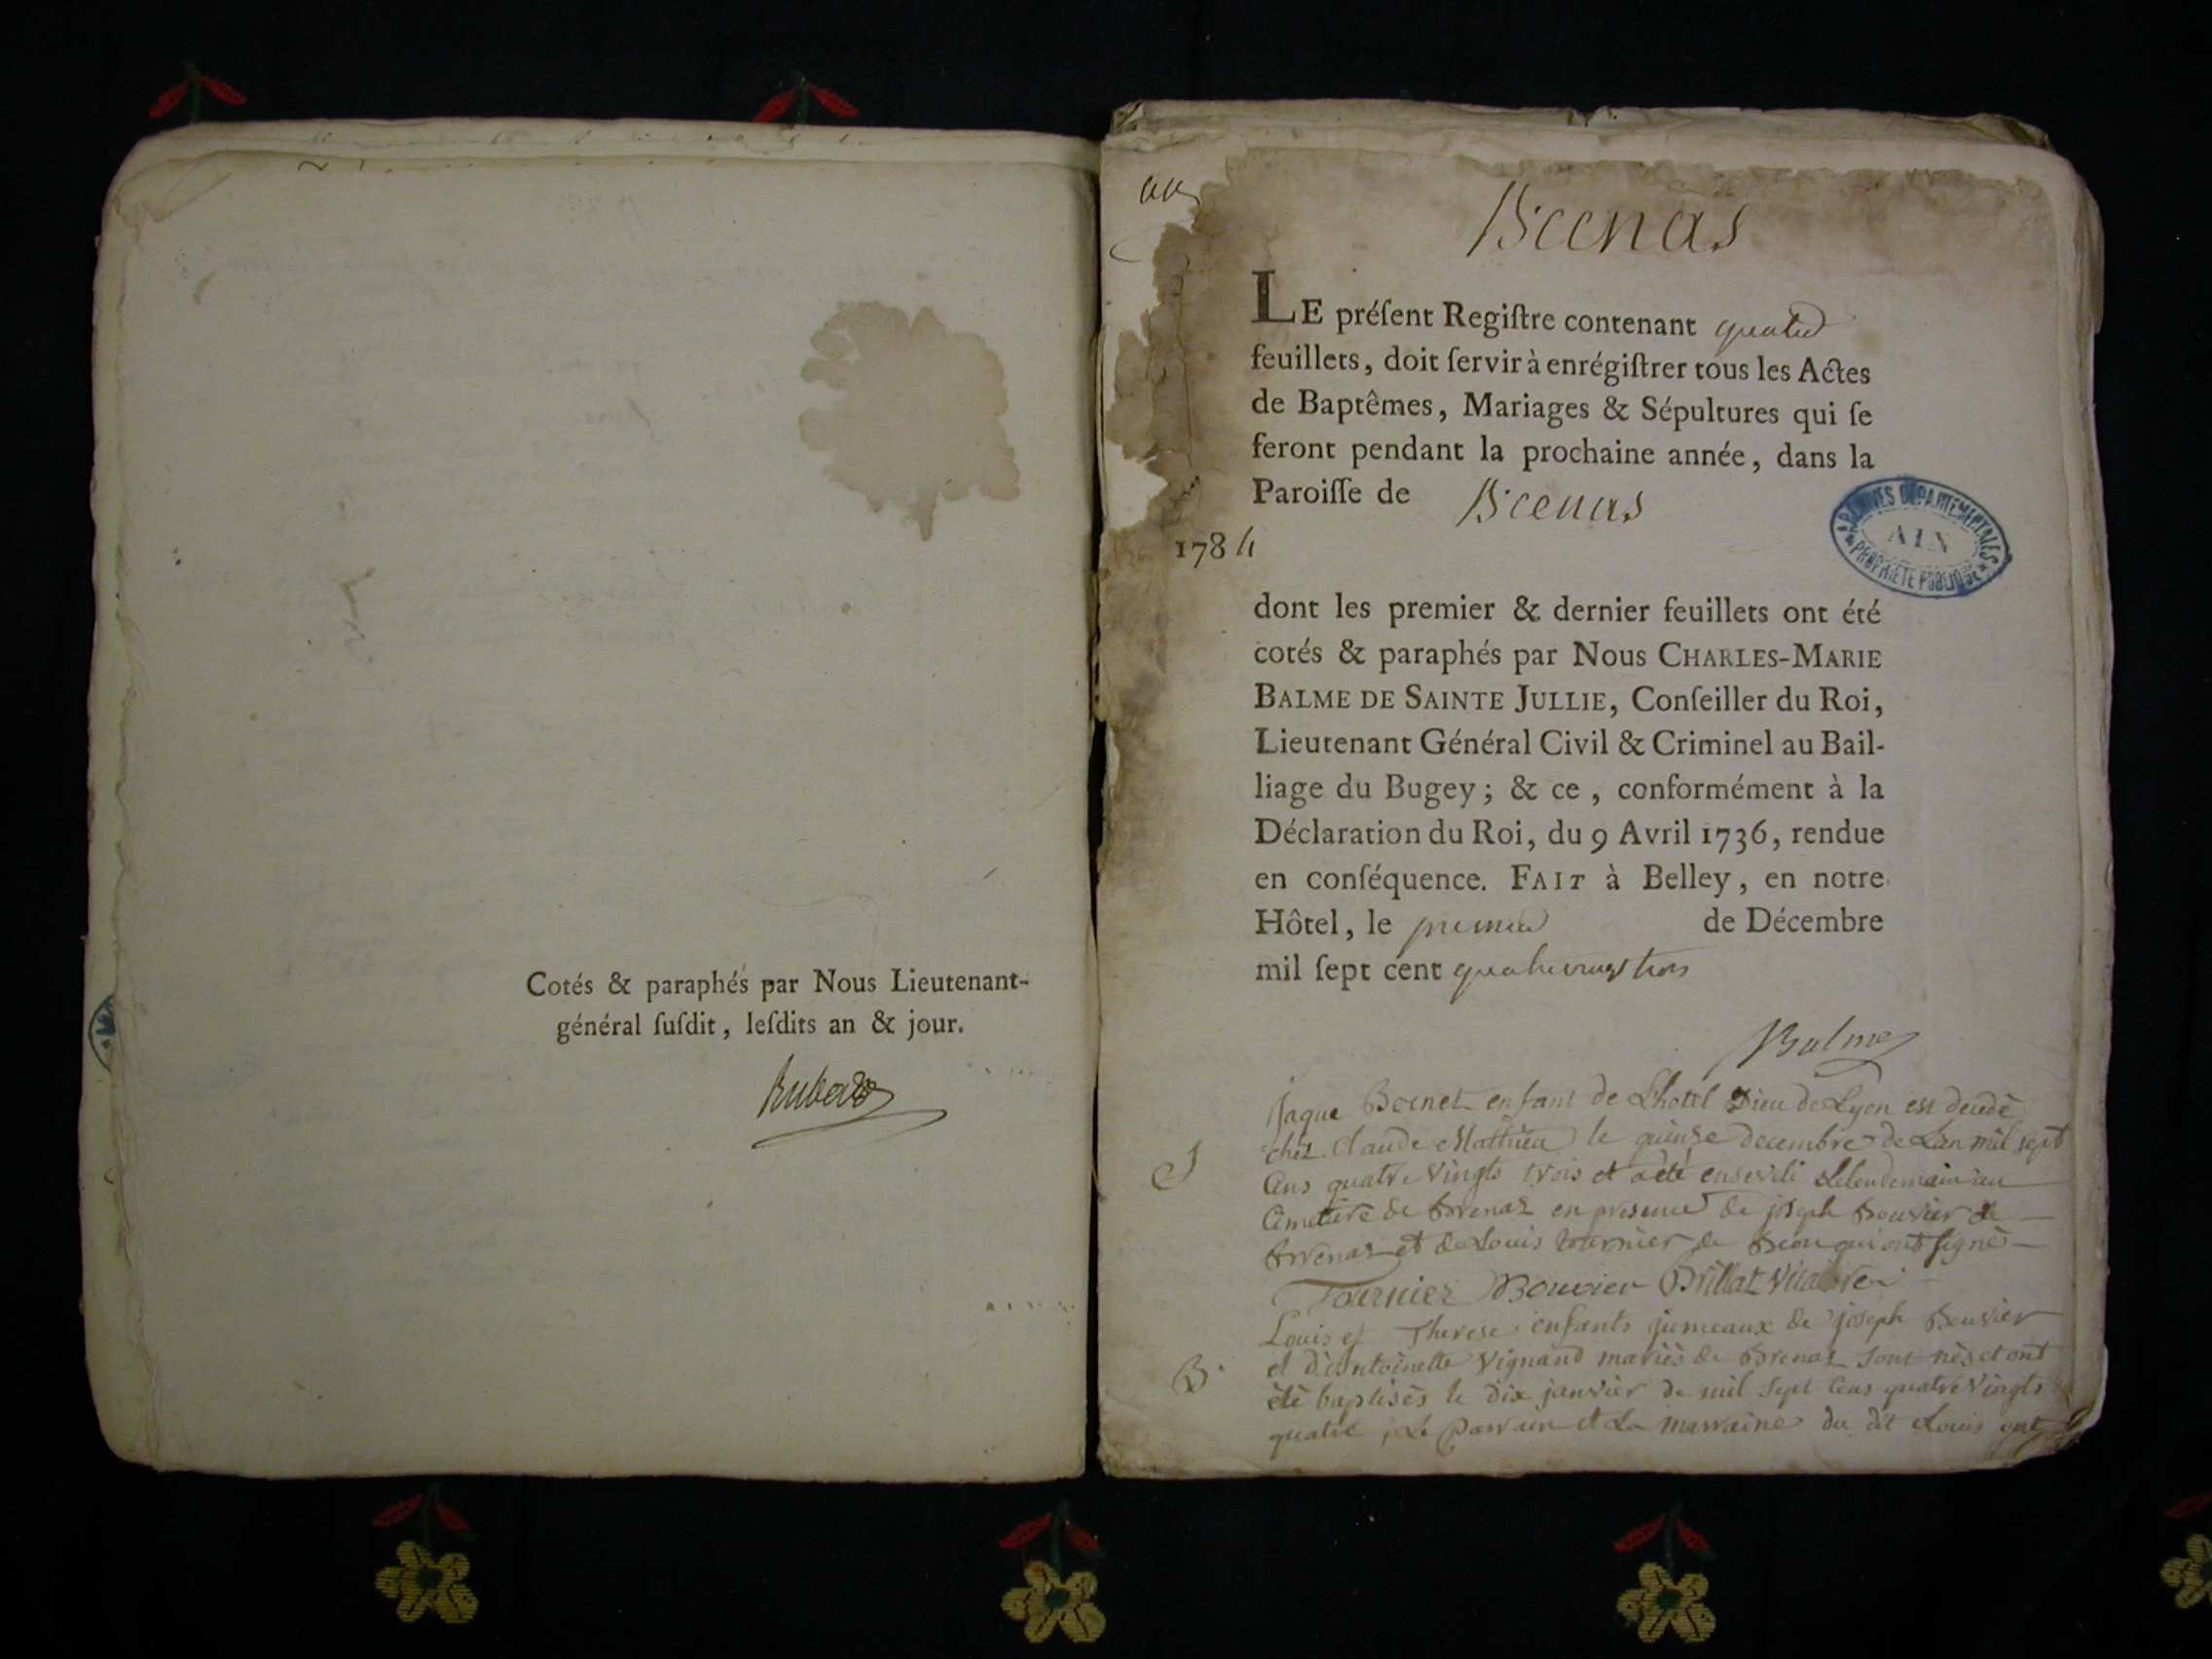 Cotés & paraphés par Nous Lieutenant-
général ſuſdit, leſdits an & jour.
Brenas
LE préſent Regiſtre contenant quatre
feuillets, doit ſervir à enrégiſtrer tous les Actes
de Baptêmes, Mariages & Sépultures qui ſe
feront pendant la prochaine année, dans la
Paroiſſe de Brenas
1784
ARCHIVES DÉPARTEMENTALES
AIN
PROPRIÉTÉ PUBLIQUE
dont les premier & dernier feuillets ont été
cotés & paraphés par Nous CHARLES-MARIE
BALME DE SAINTE JULLIE, Conſeiller du Roi,
Lieutenant Général Civil & Criminel au Bail-
liage du Bugey; & ce, conformément à la
Déclaration du Roi, du 9 Avril 1736, rendue
en conſéquence. FAIT à Belley, en notre
Hôtel, le premier de Décembre
mil ſept cent quatrevingt trois
Balme
jaque Bornet enfant de L'hotel Dieu de Lyon est decedé
chez Claude Mathieu le quinze decembre de Lan mil sept
Cens quatre Vingts trois et a été enseveli Le lendemain au
Cimetiere de Brenaz en presence de joseph Bouvier de
Brenaz et de Louis tournier de qui ont signés
S
Tournier Bouvier Brillat
Louis et Therese enfants jumeaux de joseph Bouvier
et d'Antoinette Vignand mariés de Brenaz sont nés et ont
B.
été baptisés le dix janvier de mil sept Cens quatre Vingts
quatre, Le Parrain et La marraine du dit Louis ont